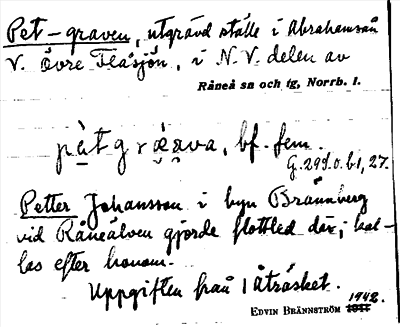 Pet-graven, utgrävd ställe i Abrahamsån
V. övre Flåsjön, i N.V. delen av
Råneå sn och tg, Norrb. l.
bf. fem.
Petter Johansson i byn Brännberg
vid Råneälven gjorde flottled där; kal-
las efter honom.
Uppgiften från 1 Åträsket.
1942.
EDVIN BRÄNNSTRÖM